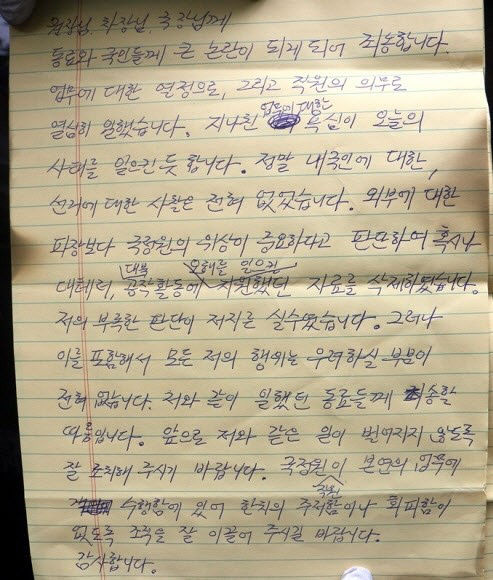 원장님, 차장님, 국장님께
동료와 국민들께 큰 논란이 되게 되어 죄송합니다.
업무에 대한 열정으로, 그리고 직원의 의무로
열심히 일했습니다. 지나친 업무에 대한 욕심이 오늘의
사태를 일으킨 듯 합니다. 정말 내국인에 대한,
선거에 대한 사찰은 전혀 없었습니다. 외부에 대한
파장보다 국정원의 위상이 중요하다고 판단하여 혹시나
대테러, 대북 공작활동에 오해를 일으킨 지원했던 자료를 삭제하였습니다.
저의 부족한 판단이 저지른 실수였습니다. 그러나
이를 포함해서 모든 저의 행위는 우려하실 부분이
전혀 없습니다. 저와 같이 일했던 동료들께 죄송할
따름입니다. 앞으로 저와 같은 일이 벌어지지 않도록
잘 조치해 주시기 바랍니다. 국정원이 본연의 업무에
수행함에 있어 한치의 직원 주저함이나 회피함이
없도록 조직을 잘 이끌어 주시길 바랍니다.
감사합니다.